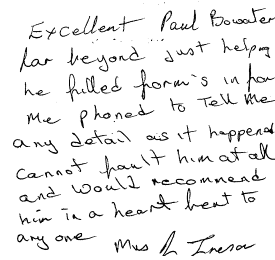 Excellent Paul Bowater
far beyond just helping
he filled form's in for
me phoned to Tell me
any detail as it happened
Cannot fault him at all
and would recommend
him in a heart beat to
any one Mrs